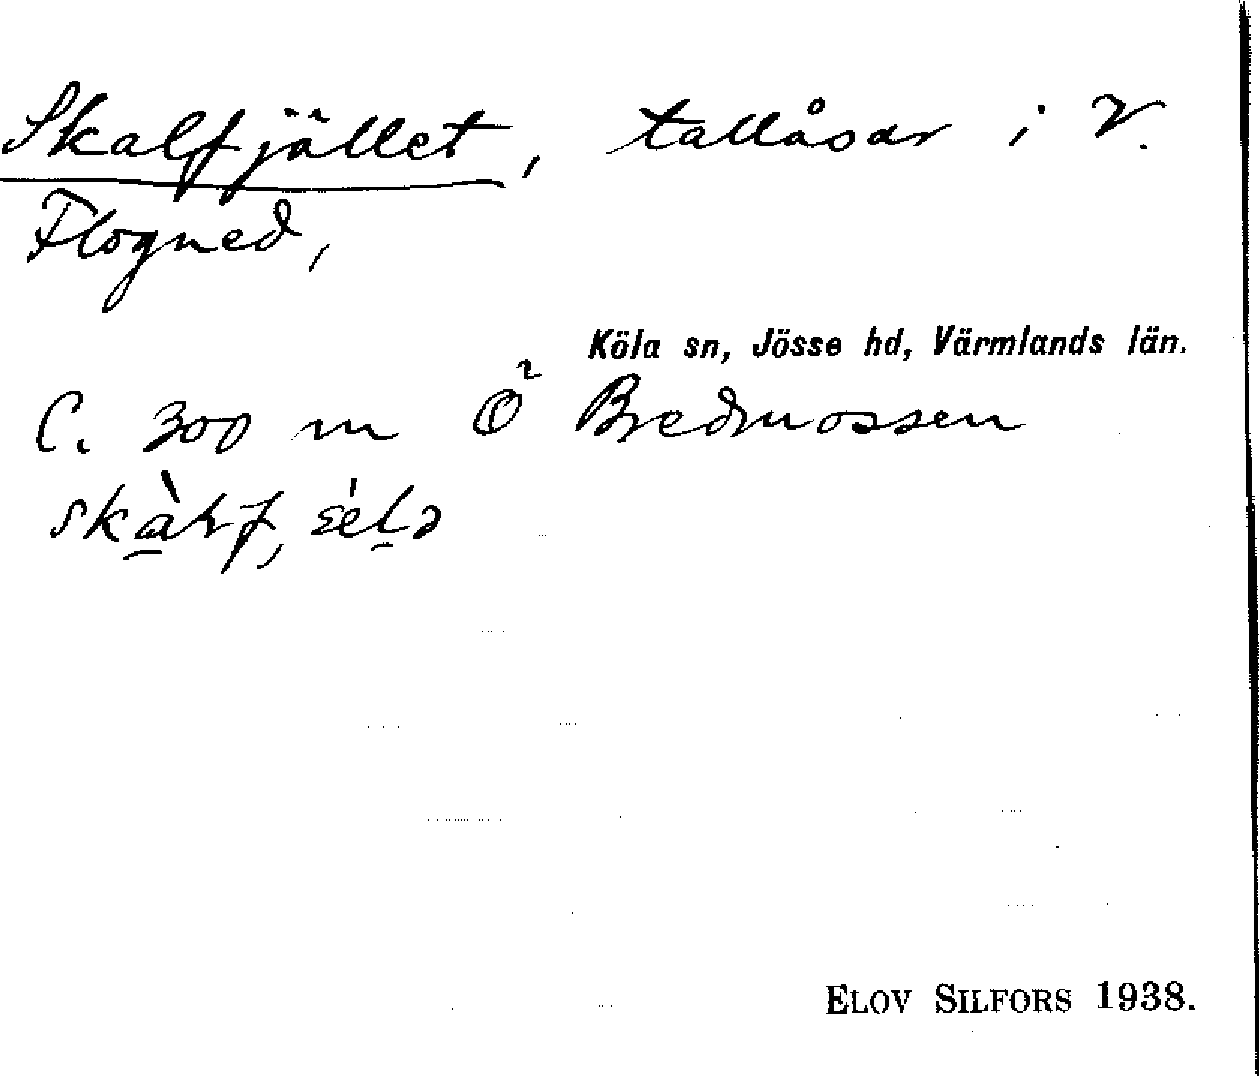 Skalfjället, tallåsar i V.
Flogned,
Köla sn, Jösse hd, Värmlands län.
C. 300 m Ö² Bredmossen
ELOV SILFORS 1938.